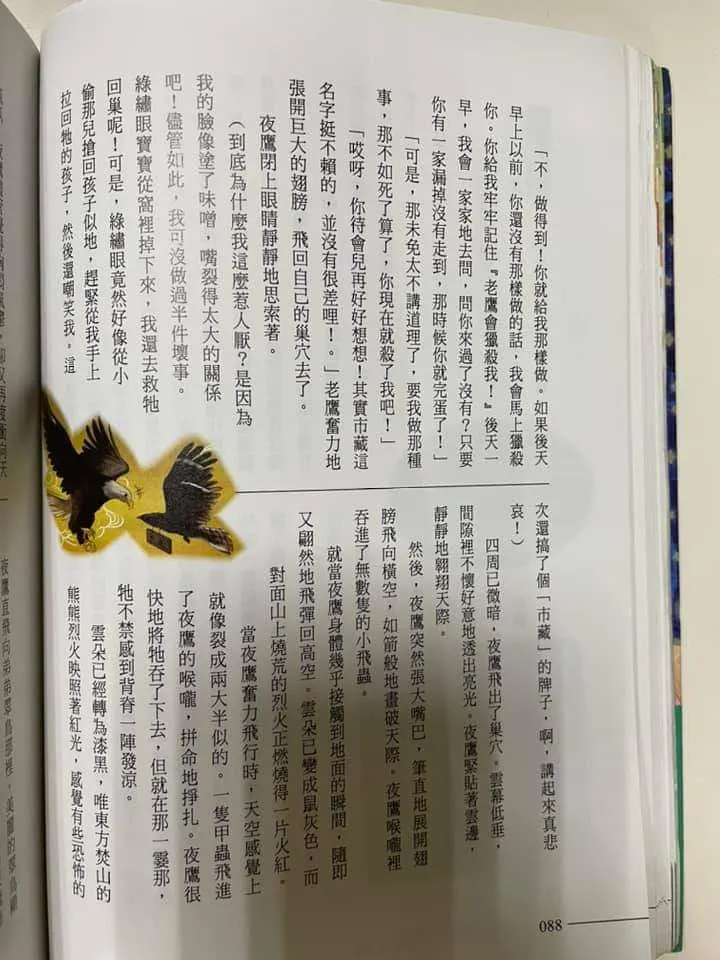 「不，做得到！你就給我那樣做。如果後天
早上以前，你還沒有那樣做的話，我會馬上獵殺
你。你給我牢牢記住『老鷹會獵殺我！』後天一
早，我會一家家地去問，問你來過了沒有？只要
你有一家漏掉沒有走到，那時候你就完蛋了！」
「可是，那未免太不講道理了，要我做那種
事，那不如死了算了，你現在就殺了我吧！」
「哎呀，你待會兒再好好想想！其實市藏這
名字挺不賴的，並沒有很差哩！。」老鷹奮力地
張開巨大的翅膀，飛回自己的巢穴去了。
夜鷹閉上眼睛靜靜地思索著。
（到底為什麼我這麼惹人厭？是因為
我的臉像塗了味噌，嘴裂得太大的關係
吧！儘管如此，我可沒做過半件壞事。
綠繡眼寶寶從窩裡掉下來，我還去救牠
回巢呢！可是，綠繡眼竟然好像從小
偷那兒搶回孩子似地，趕緊從我手上
拉回牠的孩子，然後還嘲笑我。這
次還搞了個「市藏」的牌子，啊，講起來真悲
哀！）
四周已微暗，夜鷹飛出了巢穴。雲幕低垂，
間隙裡不懷好意地透出亮光。夜鷹緊貼著雲邊，
靜靜地翱翔天際。
然後，夜鷹突然張大嘴巴，筆直地展開翅
膀飛向橫空，如箭般地畫破天際。夜鷹喉嚨裡
吞進了無數隻的小飛蟲。
就當夜鷹身體幾乎接觸到地面的瞬間，隨即
又翩然地飛彈回高空。雲朵已變成鼠灰色，而
對面山上燒荒的烈火正燃燒得一片火紅。
當夜鷹奮力飛行時，天空感覺上
就像裂成兩大半似的。一隻甲蟲飛進
了夜鷹的喉嚨，拼命地掙扎。夜鷹很
快地將牠吞了下去，但就在那一霎那，
牠不禁感到背脊一陣發涼。
雲朵已經轉為漆黑，唯東方焚山的
熊熊烈火映照著紅光，感覺有些恐怖的
088